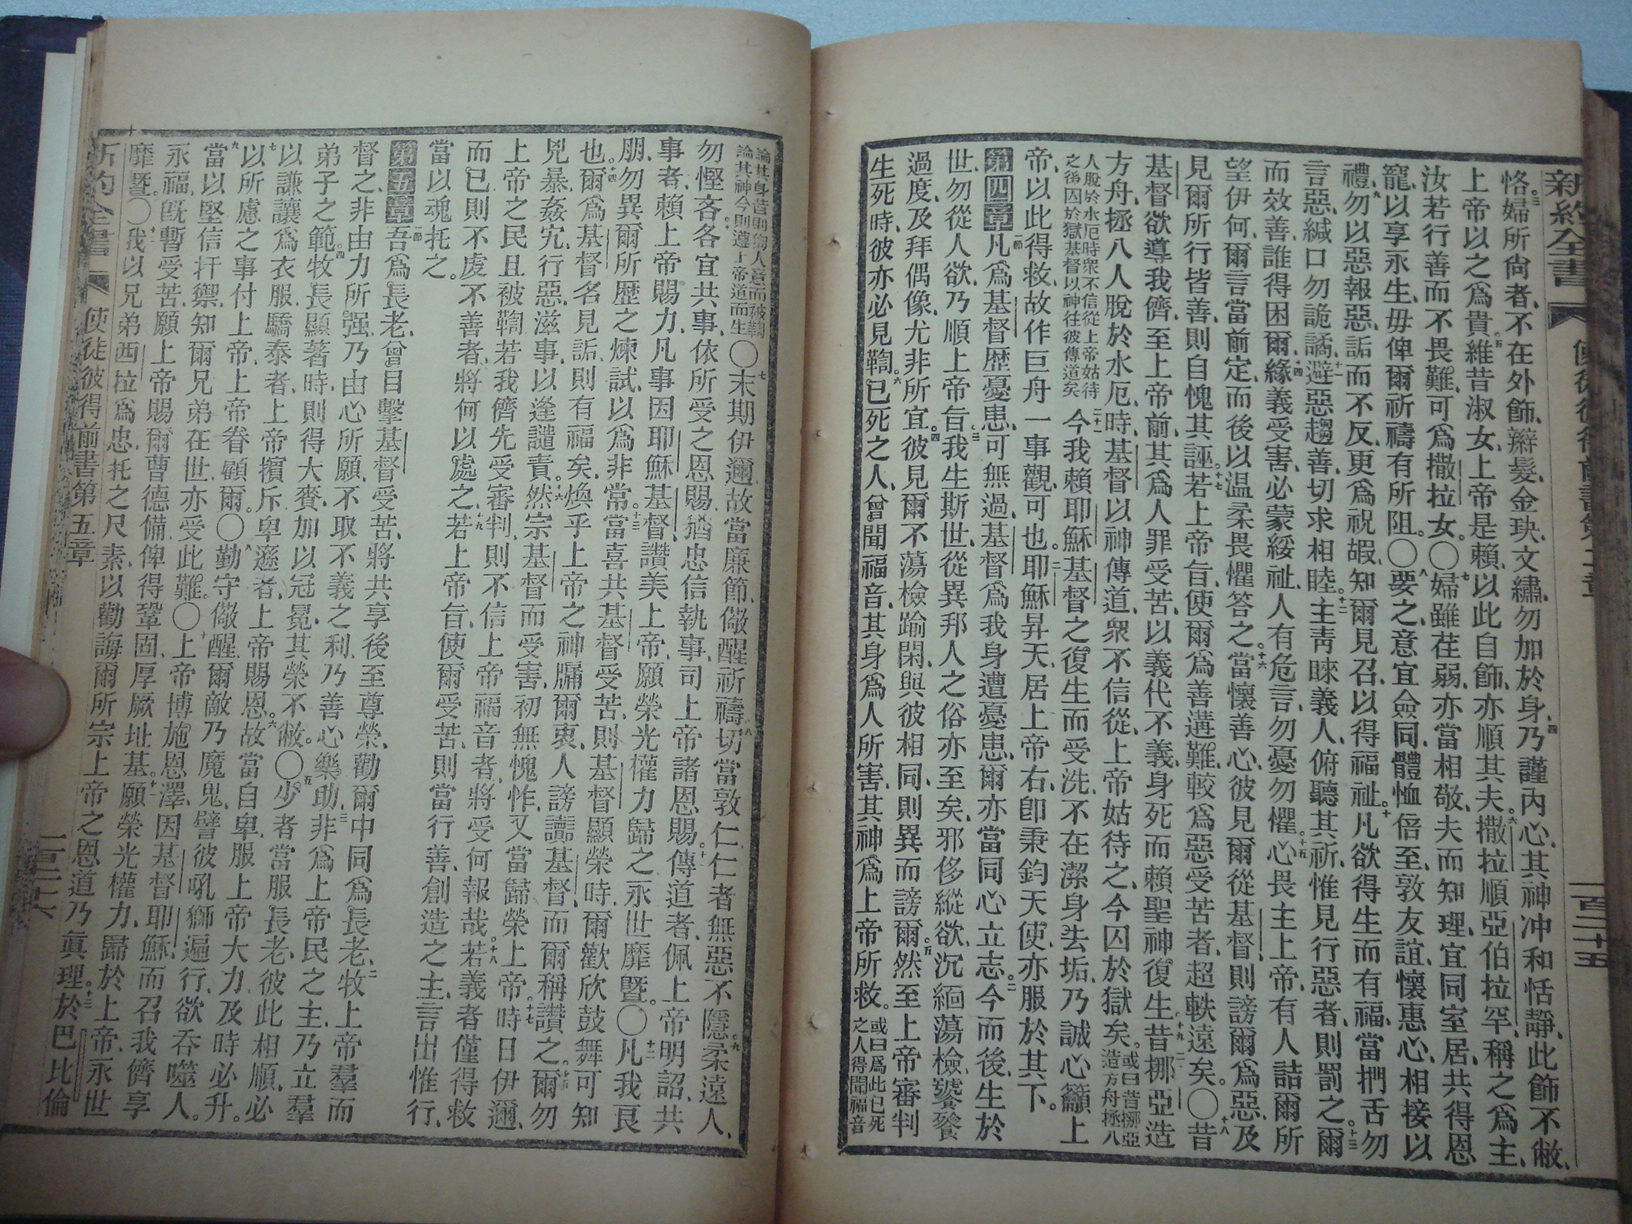 新約全書 使徒彼得前書第三章 一百三十五
恪、婦所尙者、不在外飾、辮髮金玦文繡、勿加於身、乃謹內心、其神冲和恬靜、此飾不敝、
上帝以之爲貴、維昔淑女、上帝是賴、以此自飾、亦順其夫、撒拉順亞伯拉罕、稱之爲主、
汝若行善而不畏難、可爲撒拉女、〇婦雖荏弱、亦當相敬、夫而知理、宜同室居、共得恩
寵、以享永生、毋俾爾祈禱有所阻、〇要之、意宜僉同、體恤倍至、敦友誼、懷惠心、相接以
禮、勿以惡報惡、詬而不反、更爲祝嘏、知爾見召以得福祉、凡欲得生而有福、當捫舌勿
言惡、緘口勿詭譎、避惡趨善、切求相睦、主靑睞義人、俯聽其祈、惟見行惡者則罰之、爾
而效善、誰得困爾、緣義受害、必蒙綏祉、人有危言、勿憂勿懼、心畏主上帝、有人詰爾所
望伊何、爾言當前定、而後以温柔畏懼答之、當懷善心、彼見爾從基督、則謗爾爲惡、及
見爾所行皆善、則自愧其誣、若上帝旨使爾爲善遘難、較爲惡受苦者、超軼遠矣、〇昔
基督欲導我儕至上帝前、其爲人罪受苦、以義代不義、身死而賴聖神復生、昔挪亞造
方舟、拯八人脫於水厄時、基督以神傳道、衆不信從、上帝姑待之、今囚於獄矣、或曰昔挪亞造方舟拯八
人脫於水厄時衆不信從上帝姑待之後囚於獄基督以神往彼傳道矣今我賴耶穌基督之復生而受洗、不在潔身去垢、乃誠心籲上
帝、以此得救、故作巨舟一事觀可也、耶穌昇天、居上帝右、卽秉鈞天使、亦服於其下、
第四章 凡爲基督歷憂患、可無過、基督爲我身遭憂患、爾亦當同心立志、今而後生於
世、勿從人欲、乃順上帝旨、我生斯世、從異邦人之俗亦至矣、邪侈縱欲、沉緬蕩檢、饕餮
過度、及拜偶像、尤非所宜、彼見爾不蕩檢踰閑、與彼相同、則異而謗爾、然至上帝審判
生死時、彼亦必見鞫、已死之人、曾聞福音、其身爲人所害、其神爲上帝所救、或曰爲此已死之人得聞福音
論其身昔則徇人意而被鞫論其神今則遵上帝道而生〇末期伊邇、故當廉節、儆醒祈禱、切當敦仁、仁者無惡不隱、柔遠人、
勿慳吝、各宜共事、依所受之恩賜、猶忠信執事、司上帝諸恩賜、傳道者、佩上帝明詔、共
事者、賴上帝賜力、凡事因耶穌基督、讚美上帝、願榮光權力歸之、永世靡暨、〇凡我良
朋、勿異爾所歷之煉試、以爲非常、當喜共基督受苦、則基督顯榮時、爾歡欣鼓舞可知
也、爾爲基督名見詬、則有福矣、煥乎上帝之神牖爾衷、人謗讟基督、而爾稱讚之、爾勿
兇暴姦宄、行惡滋事、以逢譴責、然宗基督而受害、初無愧怍、又當歸榮上帝、時日伊邇、
上帝之民且被鞫、若我儕先受審判、則不信上帝福音者、將受何報哉、若義者僅得救
而已、則不虔不善者、將何以處之、若上帝旨使爾受苦、則當行善、創造之主、言出惟行、
當以魂托之、
第五章 吾爲長老、曾目擊基督受苦、將共享後至尊榮、勸爾中同爲長老、牧上帝羣而
督之、非由力所强、乃由心所願、不取不義之利、乃善心樂助、非爲上帝民之主、乃立羣
弟子之範、牧長顯著時、則得大賚、加以冠冕、其榮不敝、〇少者當服長老、彼此相順、必
以謙讓爲衣服、驕泰者、上帝擯斥、卑遜者、上帝賜恩、故當自卑服上帝大力、及時必升、
以所慮之事付上帝、上帝眷顧爾、〇勤守儆醒、爾敵乃魔鬼、譬彼吼獅、遍行欲吞噬人、
當以堅信扞禦、知爾兄弟在世、亦受此難、〇上帝博施恩澤、因基督耶穌而召我儕享
永福、旣暫受苦、願上帝賜爾曹德備、俾得鞏固、厚厥址基、願榮光權力、歸於上帝、永世
靡暨、〇我以兄弟西拉爲忠、托之尺素、以勸誨爾所宗上帝之恩道乃眞理、於巴比倫
新約全書 使徒彼得前書第五章 一百三十六